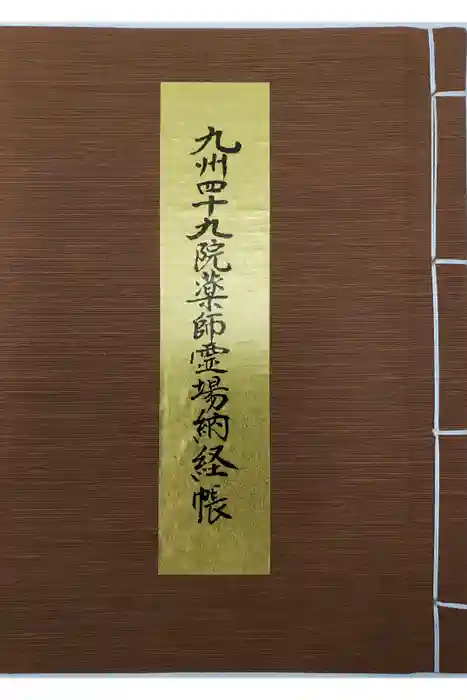 九州四十九院薬師霊場納経帳